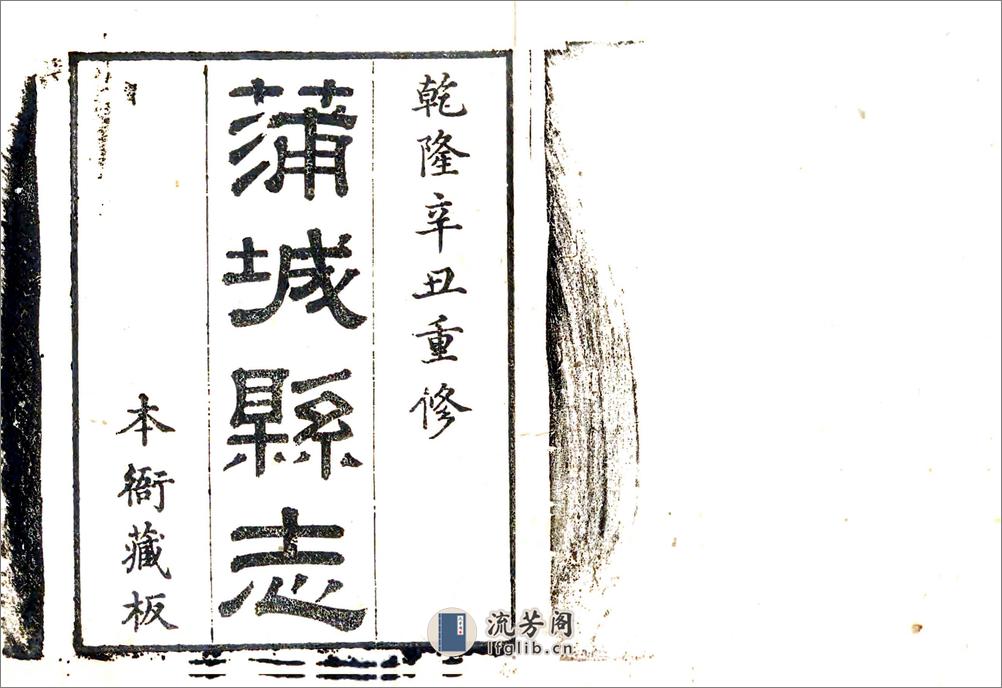 乾隆辛丑重修
蒲城縣志
本衙藏板
流芳阁
lfglib.cn